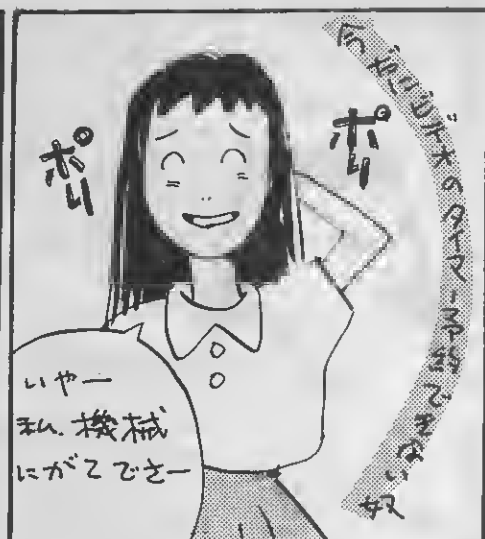 今だにビデオのタイマー予約できない奴
ポリ
ポリ
いやー
私、機械
にがてでさー